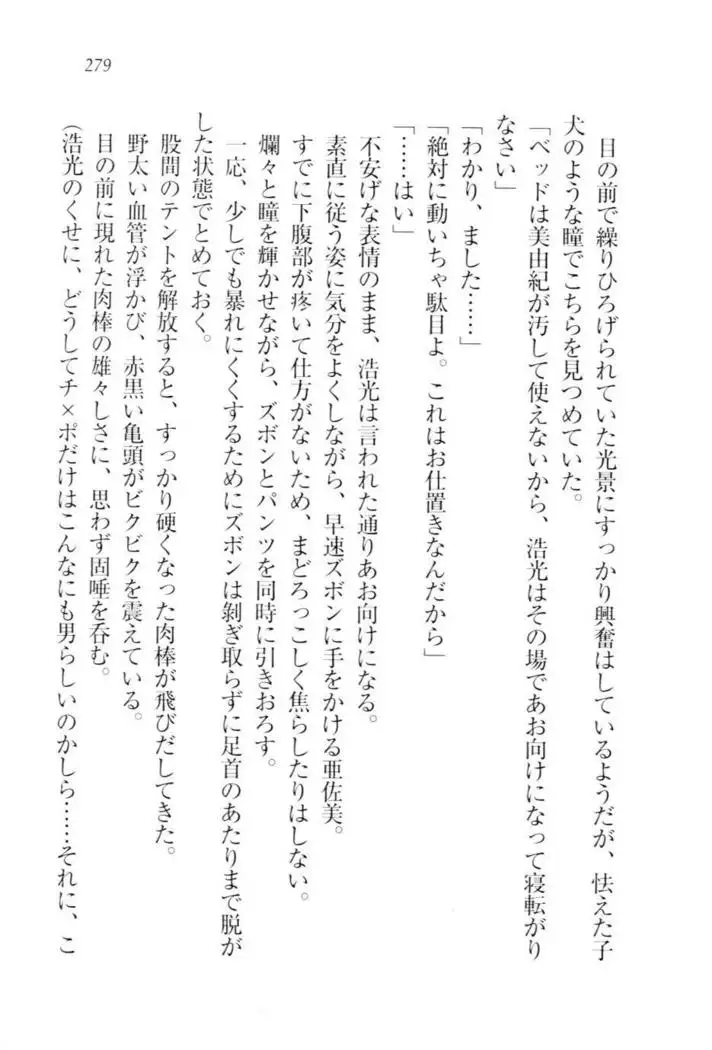 279
目の前で繰りひろげられていた光景にすっかり興奮はしているようだが、怯えた子
犬のような瞳でこちらを見つめていた。
「ベッドは美由紀が汚して使えないから、浩光はその場であお向けになって寝転がり
なさい」
「わかり、ました……」
「絶対に動いちゃ駄目よ。これはお仕置きなんだから」
「……はい」
不安げな表情のまま、浩光は言われた通りあお向けになる。
素直に従う姿に気分をよくしながら、早速ズボンに手をかける亜佐美。
すでに下腹部が疼いて仕方がないため、まどろっこしく焦らしたりはしない。
爛々と瞳を輝かせながら、ズボンとパンツを同時に引きおろす。
一応、少しでも暴れにくくするためにズボンは剝ぎ取らずに足首のあたりまで脱が
した状態でとめておく。
股間のテントを解放すると、すっかり硬くなった肉棒が飛びだしてきた。
野太い血管が浮かび、赤黒い亀頭がビクビクを震えている。
目の前に現れた肉棒の雄々しさに、思わず固唾を呑む。
(浩光のくせに、どうしてチ×ポだけはこんなにも男らしいのかしら……それに、こ